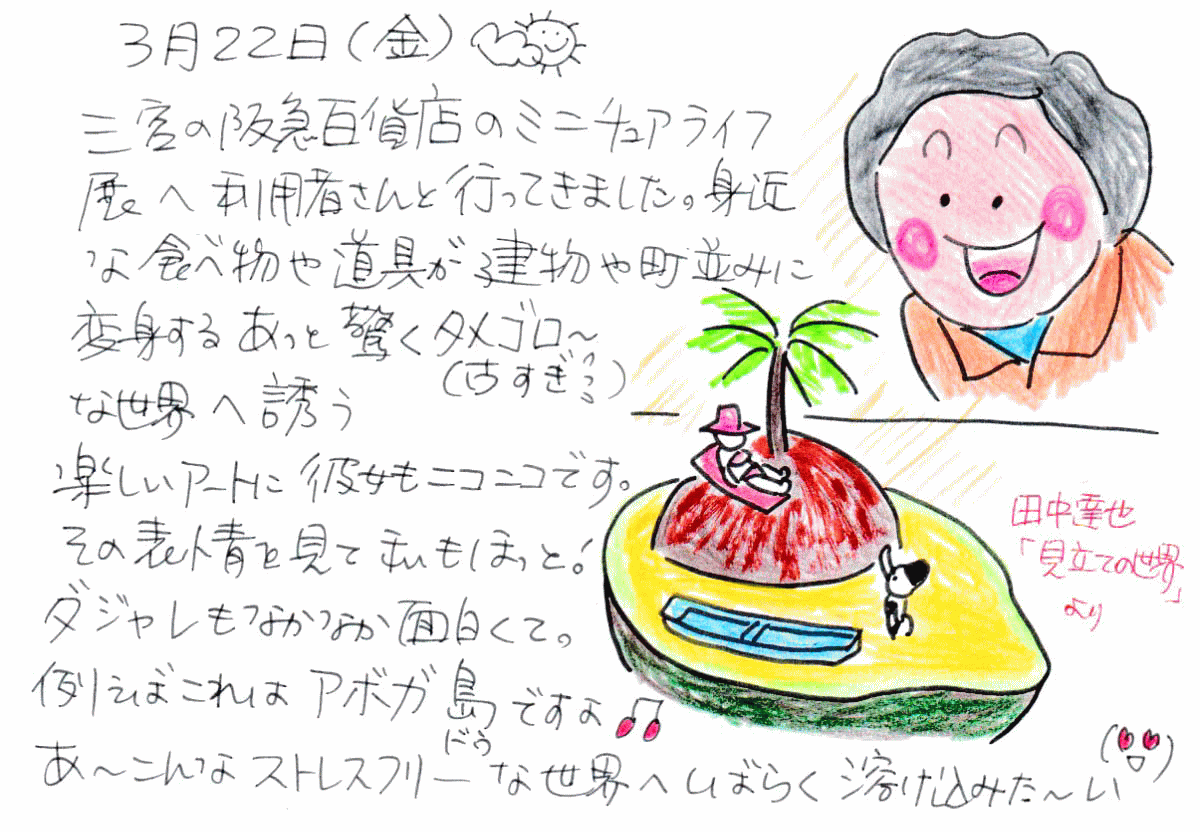 3月22日(金)
三宮の阪急百貨店のミニチュアライフ
展へ利用者さんと行ってきました。身近
な食べ物や道具が建物や町並みに
変身するあっと驚くタメゴロ〜
(古すぎ??)
な世界へ誘う
楽しいアートに彼女もニコニコです。
その表情を見て私もほっと!
ダジャレもなかなか面白くて。
例えばこれはアボガ島ですよ♫
どう
あ〜こんなストレスフリーな世界へしばらく溶け込みた〜い
田中達也
「見立ての世界」
より